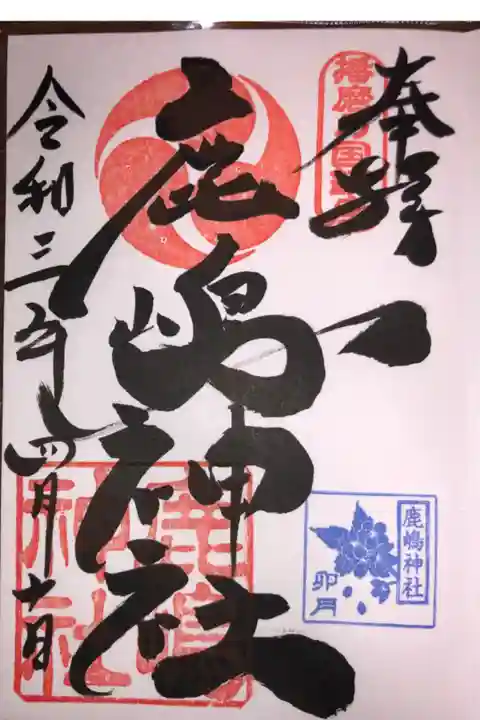 奉拝
播磨国
鹿嶋神社
鹿嶋
神社
令和三年四月十一日
鹿嶋神社
卯月